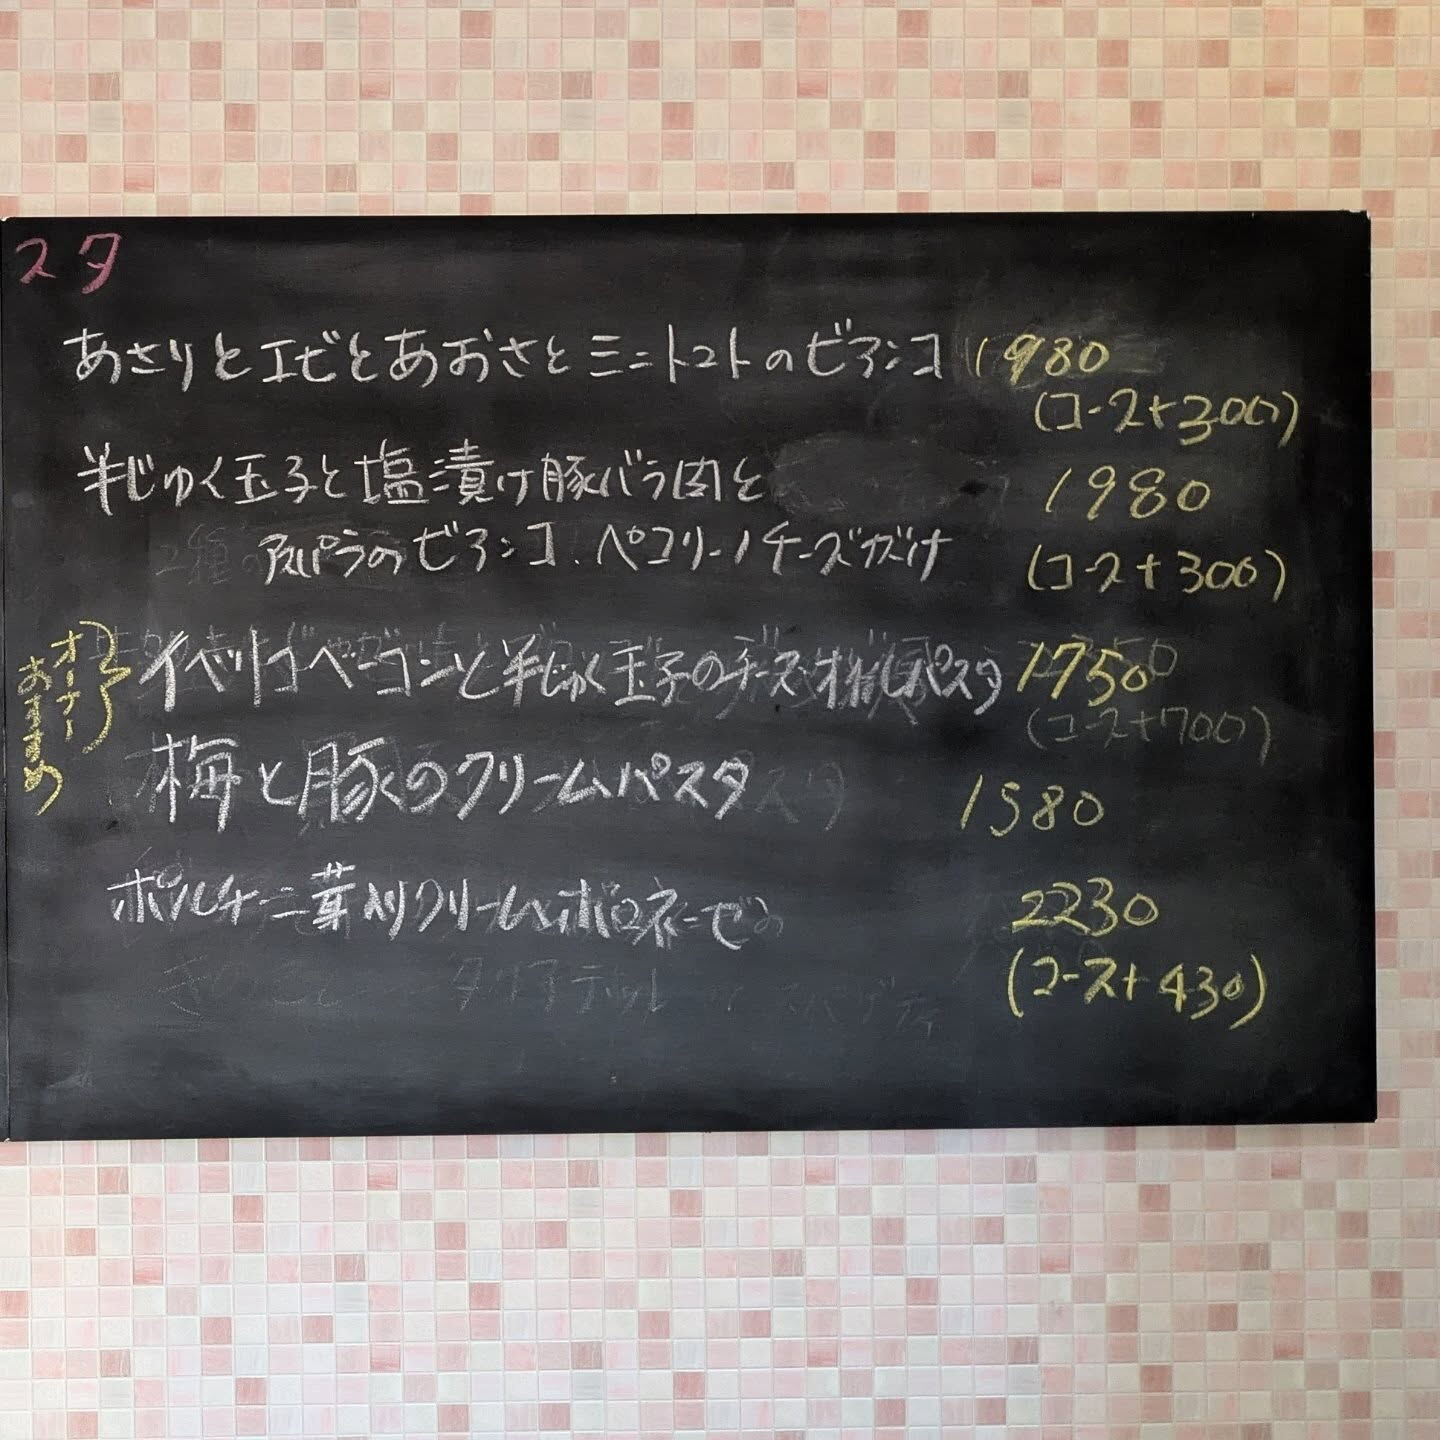 スタ
あさりとエビとあおさとミニトマトのビアンコ 1980
(コース+300)
半じゅく玉子と塩漬け豚バラ肉と 1980
アスパラのビアンコ、ペコリーノチーズがけ (コース+300)
オーナー
おすすめ
イベリコベーコンと半じゅく玉子のチーズパスタ 1750
(コース+700)
梅と豚のクリームパスタ 1580
ポルチーニ茸入りクリームボロネーゼ 2230
(コース+430)